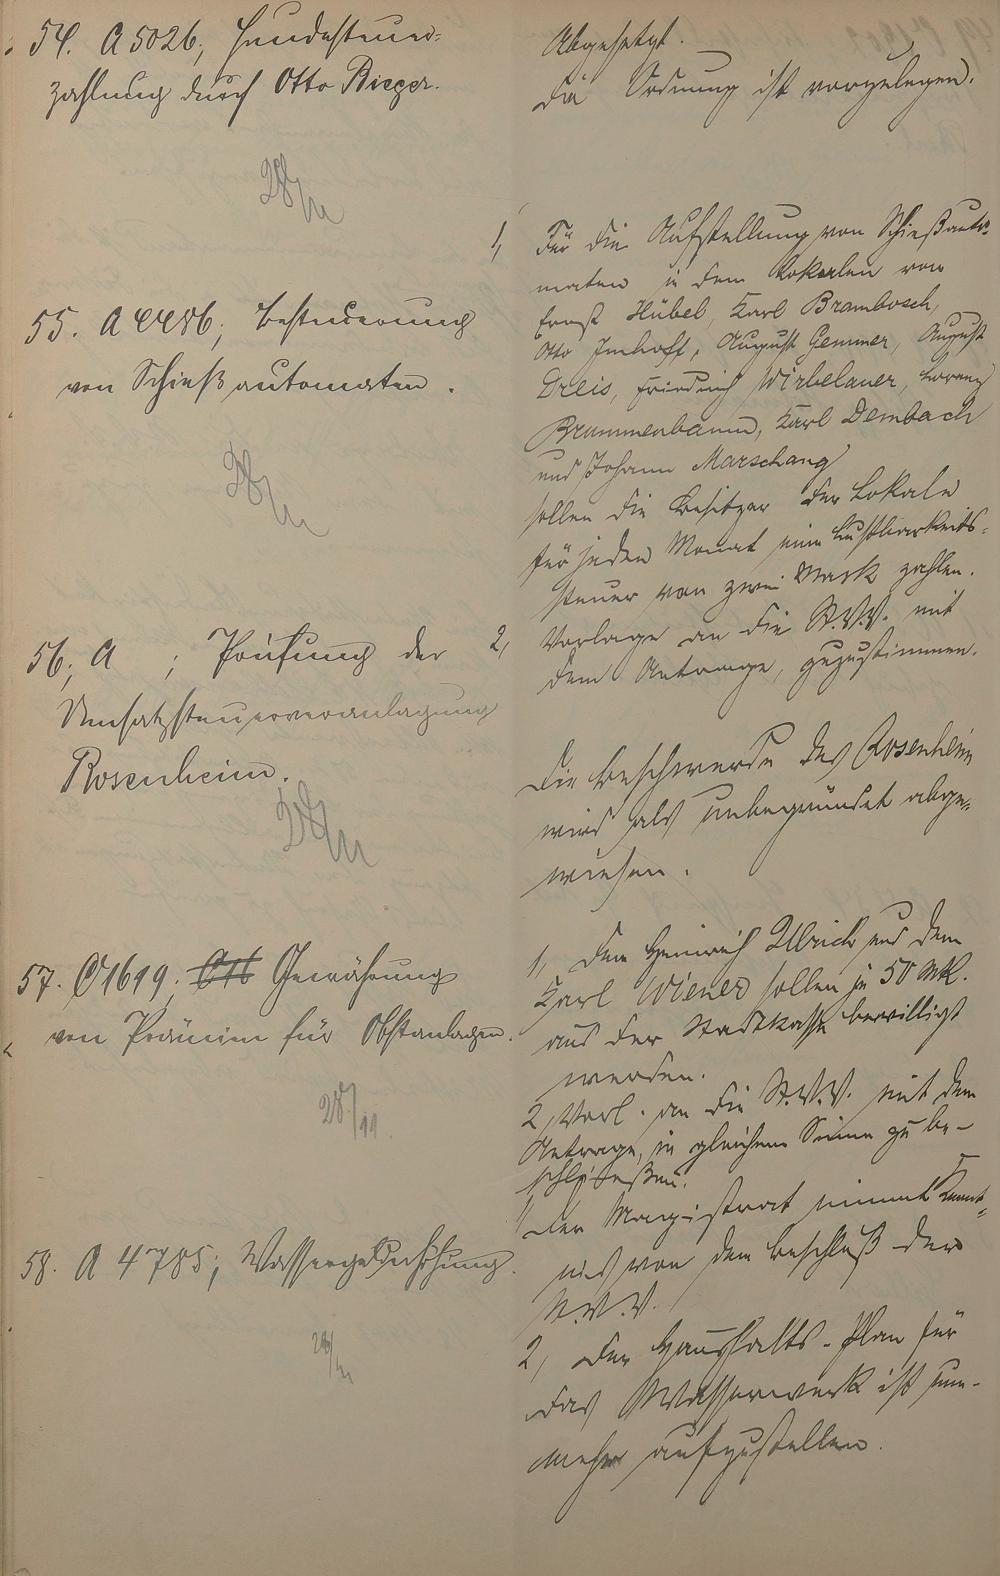 54. A 5026; Hundesteuer-
zahlung durch Otto Rieger.
28/11
Abgesetzt.
Die Ordnung ist vorzulegen.
55. A 4486; Besteuerung
von Schießautomaten.
28/11
1, Für die Aufstellung von Schießauto-
maten in dem Lokalen von
Ernst Hübel, Karl Brambosch,
Otto Imhoff, August Gemmer, August
Dreis, Friedrich Wirbelauer, Lorenz
Brummenbaum, Karl Dembach
und Johann Marschang
sollen die Besitzer der Lokale
für jeden Monat eine Lustbarkeits-
steuer von zwei Mark zahlen.
2, Vorlage an die St.V.V. mit
dem Antrage, zuzustimmen.
56; A ; Prüfung der
Umsatzsteuerveranlagung
Rosenheim.
28/11
Die Beschwerde des Rosenheim
wird als unbegründet abge-
wiesen.
57. C 1619. Gewährung
von Prämien für Obstanlagen.
28/11.
1, Dem Heinrich Ullrich und dem
Karl Wiener sollen je 50 Mk.
aus der Stadtkasse bewilligt
werden.
2, Vorl. an die St.V.V. mit dem
Antrage, in gleichem Sinne zu be-
schließen.
58. A 4785; Wassergelderhöhung.
28/11
1, Der Magistrat nimmt Kennt-
nis von dem Beschluß der
St.V.V.
2, Der Haushalts-Plan für
das Wasserwerk ist nun-
mehr aufzustellen.